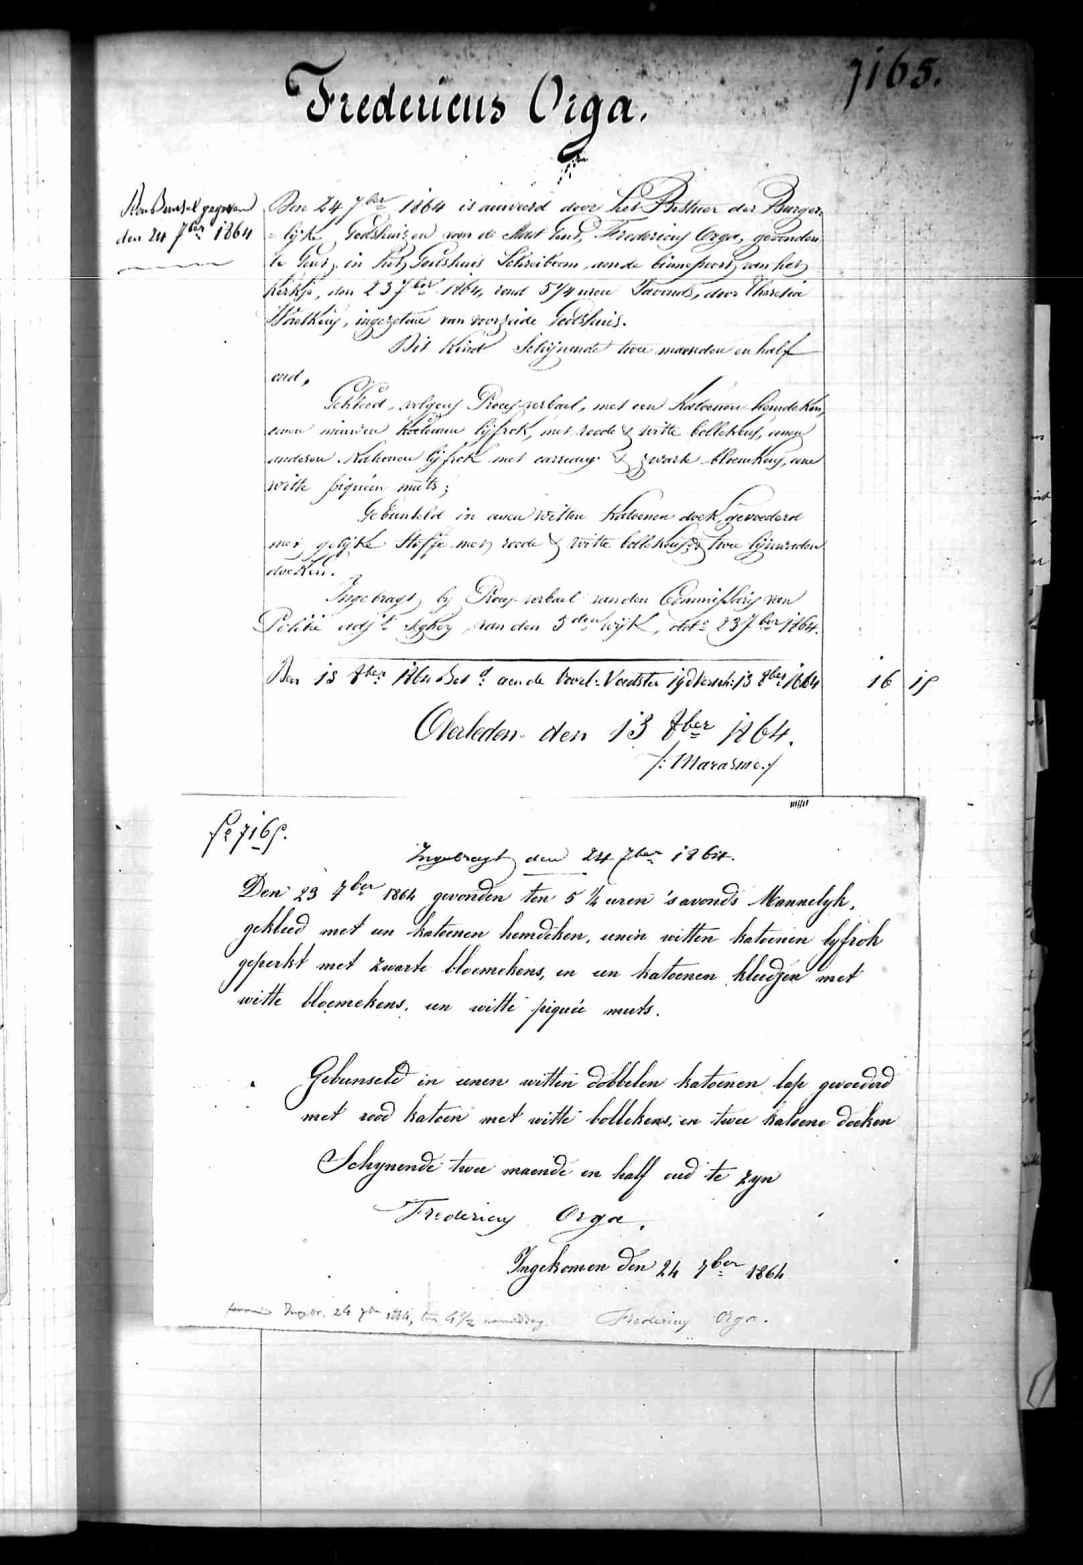 7165.
Fredericus Orga.
den 24 7ber 1864
Den 24 7ber 1864 is aanveerd door het Bestuer der Burger-
lijke Godshuizen van de Stad Gend, Fredericus Orga, gevonden
te Gent, in het Godshuis Schreiboom, aen de binnepoort van het
Kerkje, den 23 7ber 1864, rond 5 1/4 uren 's avonds, door Theresia
ingezetene van voorzeide Godshuis.
Dit Kind Schijnende twee maanden en half
oud,
Gekleed, volgens Proces-verbael, met een Katoenen hemdeken,
eenen nieuwen lijfrok, met roode & witte bollekens, eenen
anderen Katoenen lijfrok met & zwarte bloemkens, eene
witte piquéen muts;
Gebunseld in eenen witten Katoenen doek, gevoederd
met gelijke Stoffe met roode & witte bollekens, & twee lijnwaden
doeken.
Ingebragt, bij Proces-verbael van den Commissaris van
Politie adjt van den 3den wijk, dato 23 7ber 1864.
Den 13 8ber 1864 Bet d aen de Voedster 13 8ber 1864 16 15
Overleden den 13 8ber 1864.
/: Marasme :/
fo 7165.
Ingebragt den 24 7ber 1864.
Den 23 7ber 1864 gevonden ten 5 1/4 uren 's avonds Mannelyk,
gekleed met een katoenen hemdeken, eenen witten katoenen lyfrok
geperkt met zwarte bloemekens, en een katoenen kleedjen met
witte bloemekens, een witte piquée muts.
Gebunseld in eenen witten dobbelen katoenen lap gevoederd
met rood katoen met witte bollekens, en twee katoene doeken
Schynende twee maende en half oud te zyn
Fredericus Orga.
Ingekomen den 24 7ber 1864
24 7ber 1864, ten 4 1/2 namiddag. Fredericus Orga.